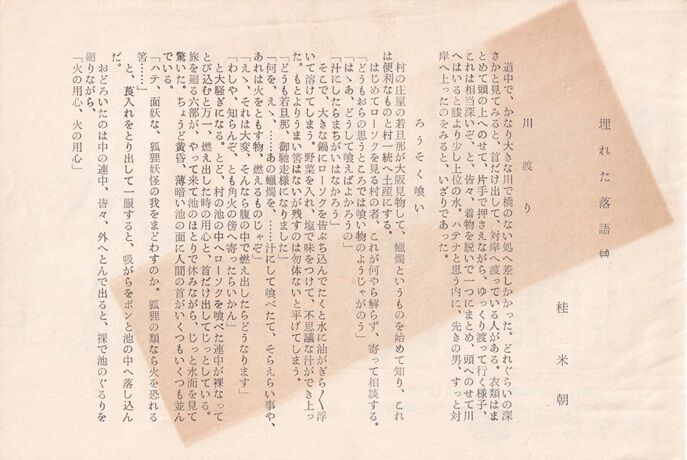 埋れた落語 ㈣
桂米朝
川渡り
道中で、かなり大きな川で橋のない処へ差しかかった。どれぐらいの深
さかと見てみると、首だけ出して、対岸へ渡っている人がある。衣類はま
とめて頭の上へのせて、片手で押さえながら、ゆっくり渡って行く様子、
これは相当深いぞ、と、皆々、着物を脱いで一つにまとめ、頭へのせて川
へはいると膝より少し上位の水。ハテナと思う内に、先きの男、すっと対
岸へ上ったのをみると、いざりであった。
ろうそく喰い
村の庄屋の若旦那が大阪見物して、蠟燭というものを始めて知り、これ
は便利なものと村一統へ土産にする。
はじめてローソクを見る村の者、これが何やら解らず、寄って相談する。
「どうもおらの思うところでは喰い物のようじゃがのう」
「はゝあ、どうして喰えばよかろうの」
「汁にしたらまちがいはなかろう」
そこで、大きな鍋にローソクを皆ぶち込んでたくと水に油がぎらく浮
いて溶けてしまう。野菜を入れ、塩で味をつけて、不思議な汁ができ上っ
た。もとよりうまい筈はないが残すのは勿体ないと平げてしまう。
「どうも若旦那、御馳走様になりました」
「何を、えゝ、……あの蠟燭を、……汁にして喰べたて、そらえらい事や、
あれは火をともす物、燃えるものじゃぞ」
「えゝ、それは大変、そんなら腹の中で燃え出したらどうなります」
「わしや、知らんぞ、とも角火の傍へ寄ったらいかん」
と大騒ぎになる。とど、村の池の中へローソクを喰べた連中が裸なって
とび込むと万一、燃え出した時の用心と、首だけ出してじっとしている。
旅を廻る六部が、やって来て池のほとりで休みながら、じっと水面を見て
驚いた。ちょうど黄昏、薄暗い池の面に人間の首がいくつもいくつも並ん
でいる。
「ハテ、面妖な、狐狸妖怪の我をまどわすのか。狐狸の類なら火を恐れる
筈……」
と、莨入れをとり出して一服すると、吸がらをポンと池の中へ落し込ん
だ。
おどろいたのは中の連中、皆々、外へとんで出ると、裸で池のぐるりを
廻りながら、
「火の用心、火の用心」